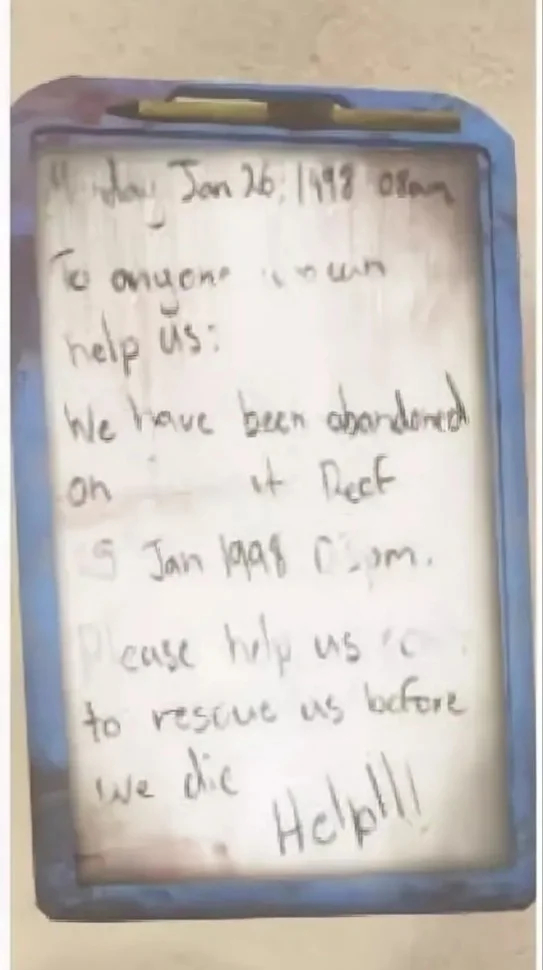 Jan 26, 1998 08am
To anyone
help us:
We have been abandoned
on Reef
Jan 1998 pm.
Please help us
to rescue us before
we die
Help!!!